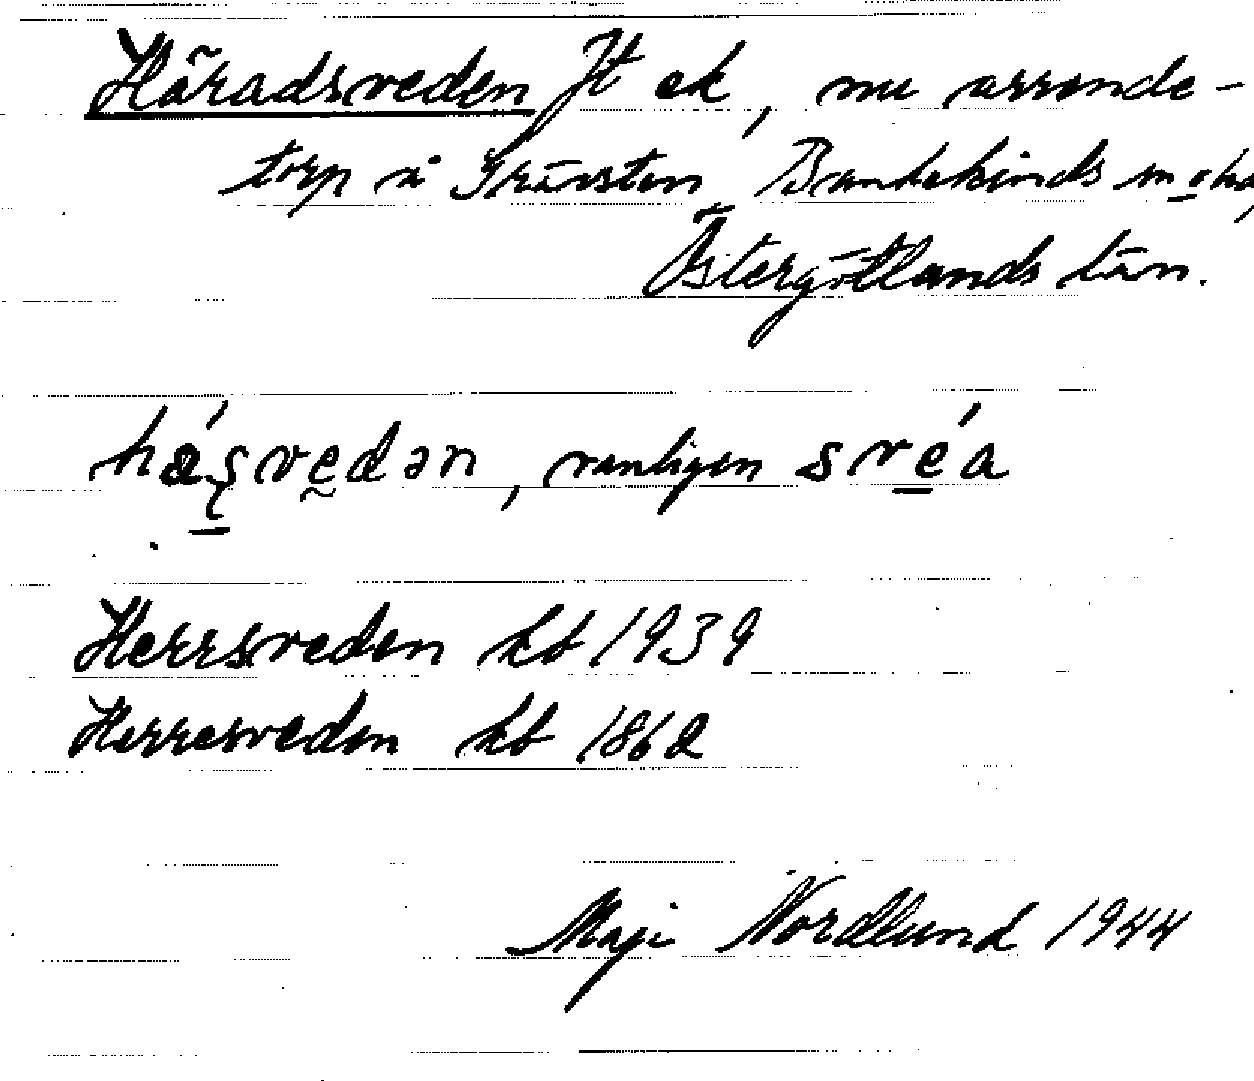 Häradsveden Jt ek, nu arrende-
torp å Grävsten, Bankekinds sn o hd,
Östergötlands län.
há̱ʂvedən, vanligen svéa
Herrsveden kb 1939
Herresveden kb 1862
Maji Nordlund 1944